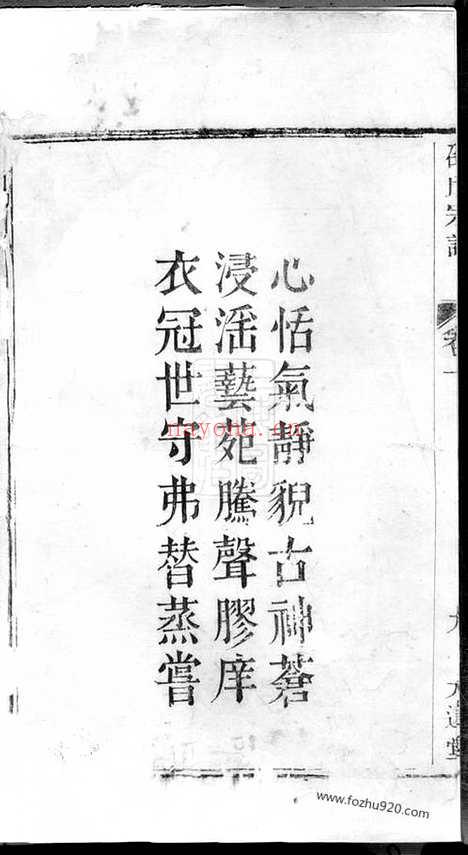 心恬氣靜貌古神蒼
浸淫藝苑騰聲膠庠
衣冠世守弗替蒸嘗
nayona.cn
www.fozhu920.com